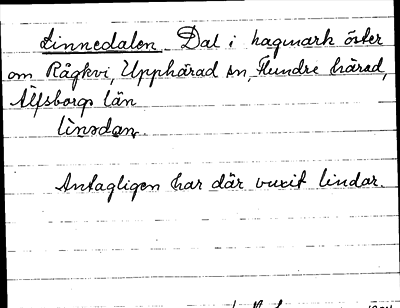 Linnedalen. Dal i hagmark öster
om Rågkvi, Upphärad sn, Flundre härad,
Älfsborgs län
linədan.
Antagligen har där vuxit lindar.